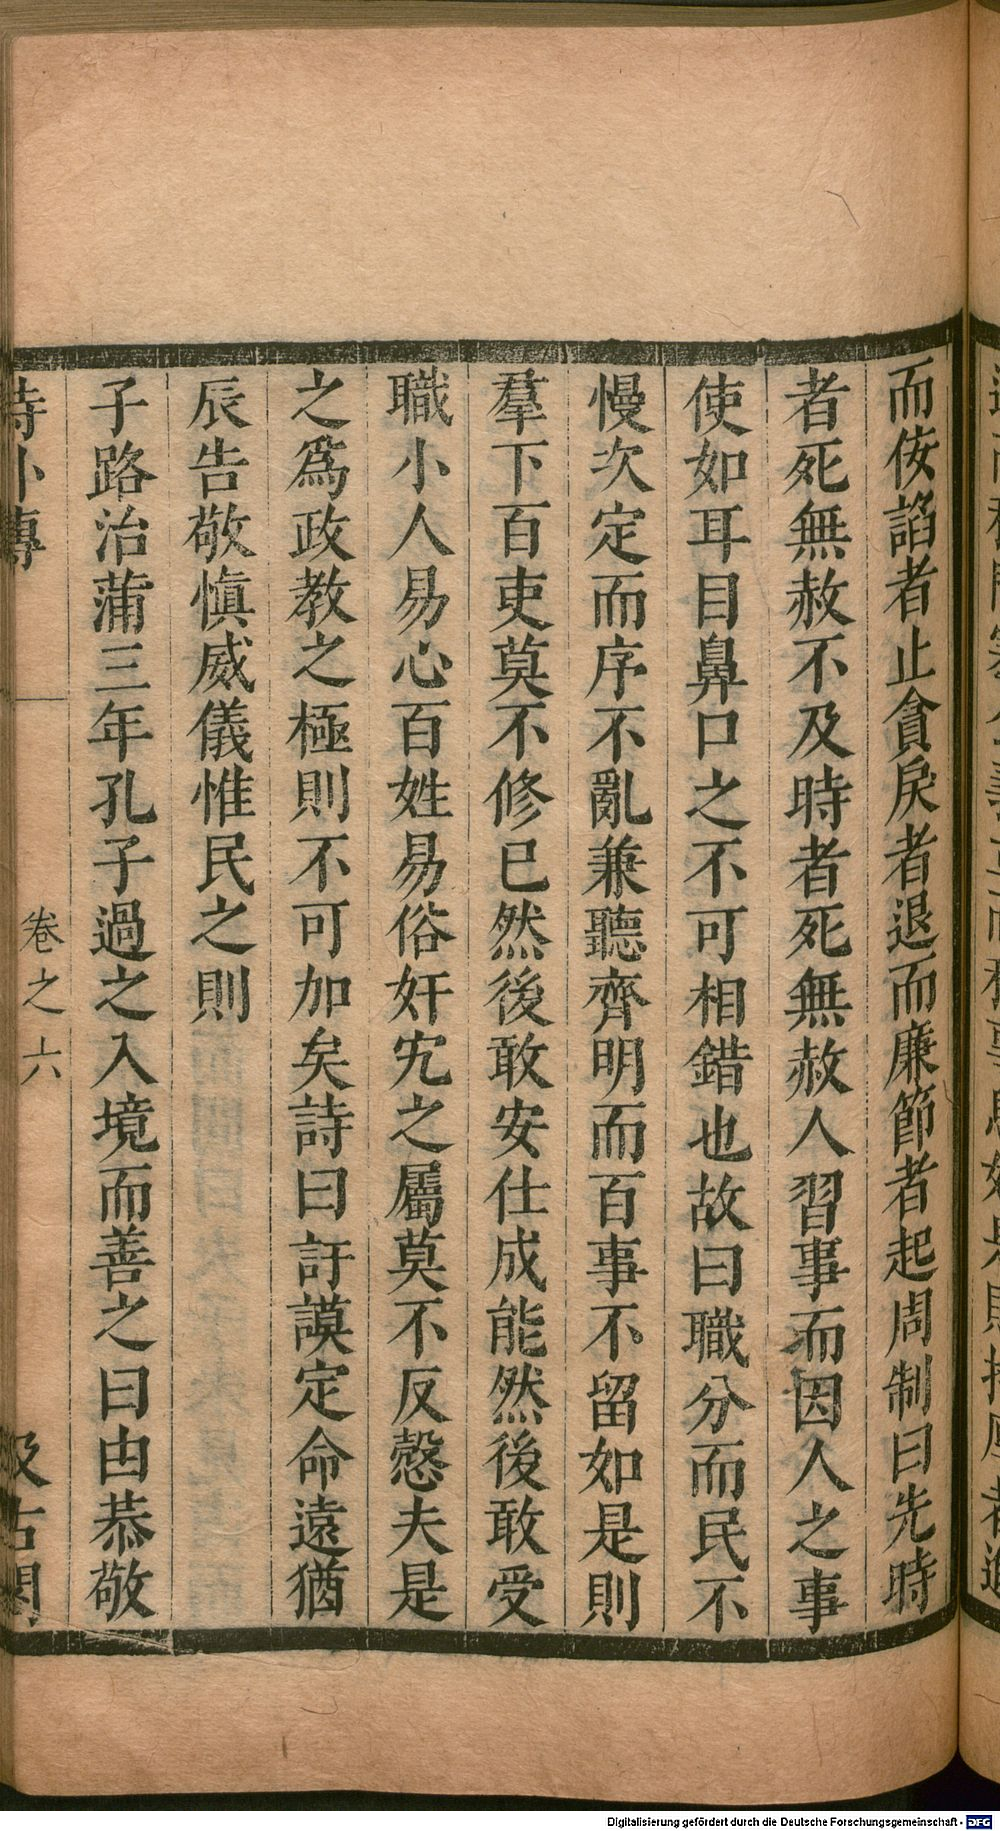 而佞諂者止貪戾者退而廉節者起周制曰先時
者死無赦不及時者死無赦人習事而因人之事
使如耳目鼻口之不可相錯也故曰職分而民不
慢次定而序不亂兼聽齊明而百事不留如是則
羣下百吏莫不修已然後敢安仕成能然後敢受
職小人易心百姓易俗奸宄之屬莫不反慤夫是
之爲政教之極則不可加矣詩曰訏謨定命遠猶
辰告敬慎威儀惟民之則
子路治蒲三年孔子過之入境而善之曰由恭敬
詩外傳
卷之六
汲古閣
Digitalisierung gefördert durch die Deutsche Forschungsgemeinschaft - DFG